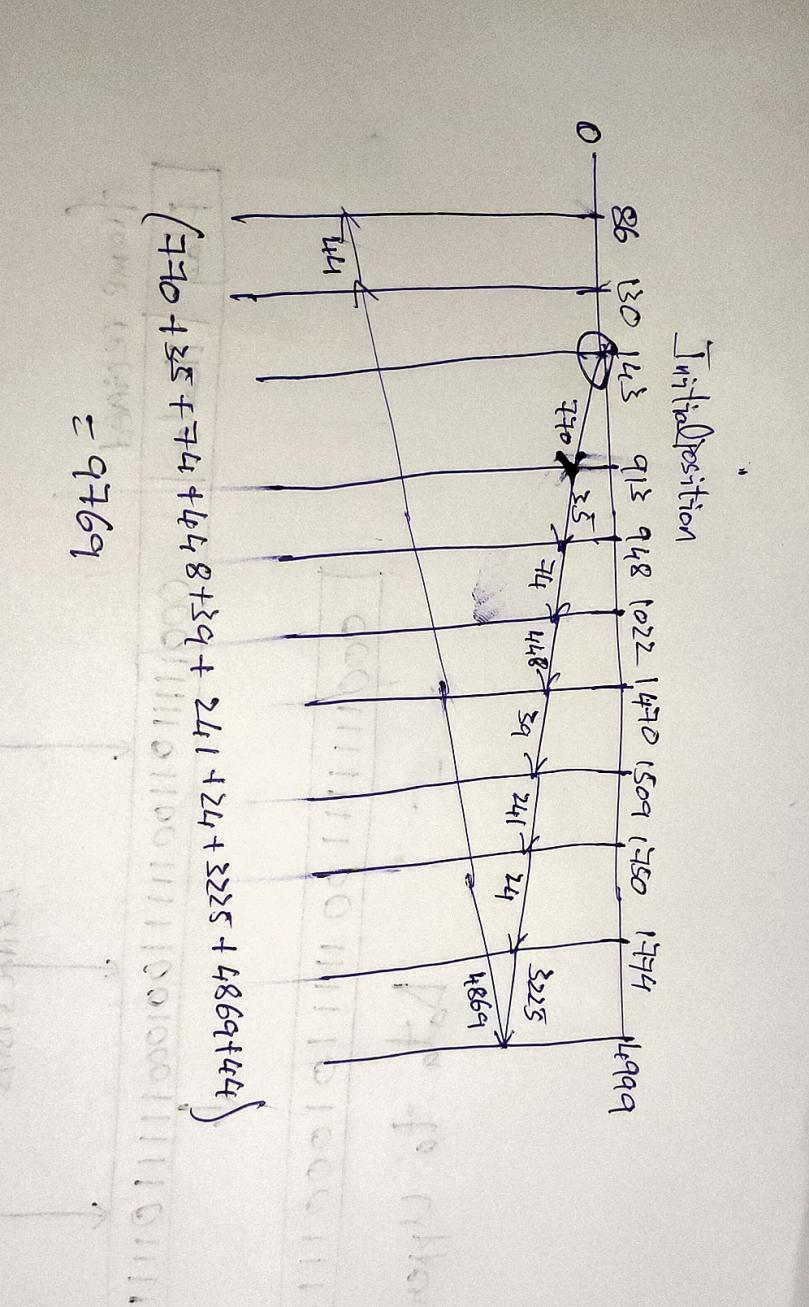 Initial position
0 86 130 143 913 948 1022 1470 1509 1750 1774 4999
770 35 74 448 39 241 24 3225
44 4869
(770 + 35 + 74 + 448 + 39 + 241 + 24 + 3225 + 4869 + 44)
= 9769